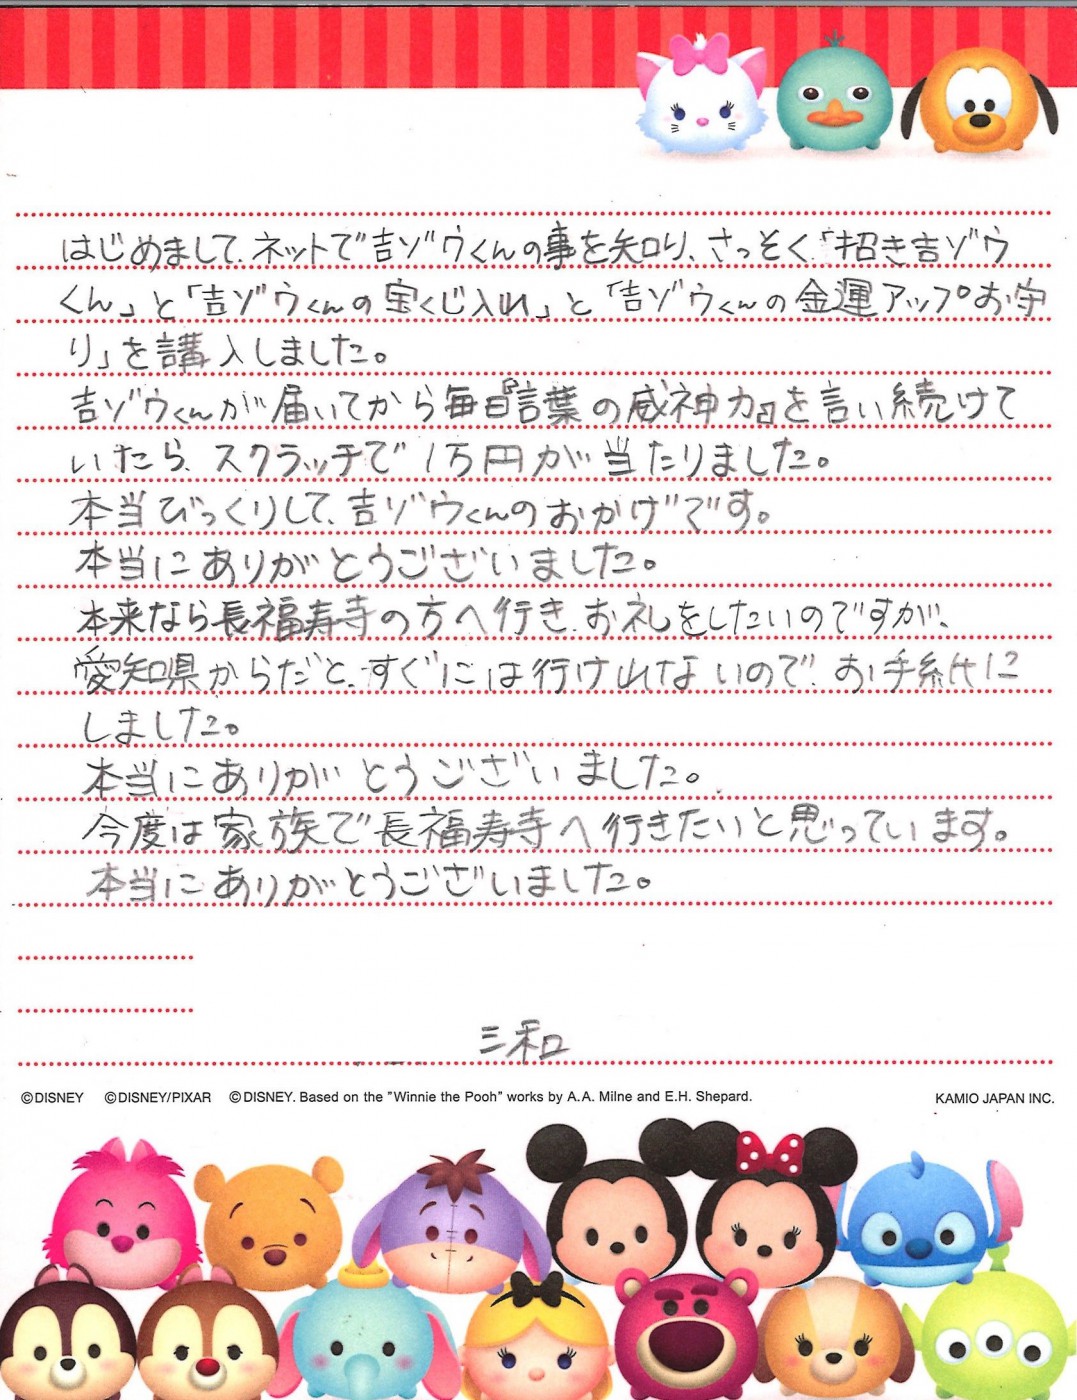 はじめまして、ネットで吉ゾウくんの事を知り、さっそく「招き吉ゾウ
くん」と「吉ゾウくんの宝くじ入れ」と「吉ゾウくんの金運アップお守
り」を講入しました。
吉ゾウくんが届いてから毎日『言葉の威神力』を言い続けて
いたら、スクラッチで1万円が当たりました。
本当びっくりして、吉ゾウくんのおかげです。
本当にありがとうございました。
本来なら長福寿寺の方へ行き、お礼をしたいのですが、
愛知県からだと、すぐには行けれないので、お手紙に
しました。
本当にありがとうございました。
今度は家族で長福寿寺へ行きたいと思っています。
本当にありがとうございました。
三和
©DISNEY ©DISNEY/PIXAR ©DISNEY. Based on the "Winnie the Pooh" works by A.A. Milne and E.H. Shepard. KAMIO JAPAN INC.